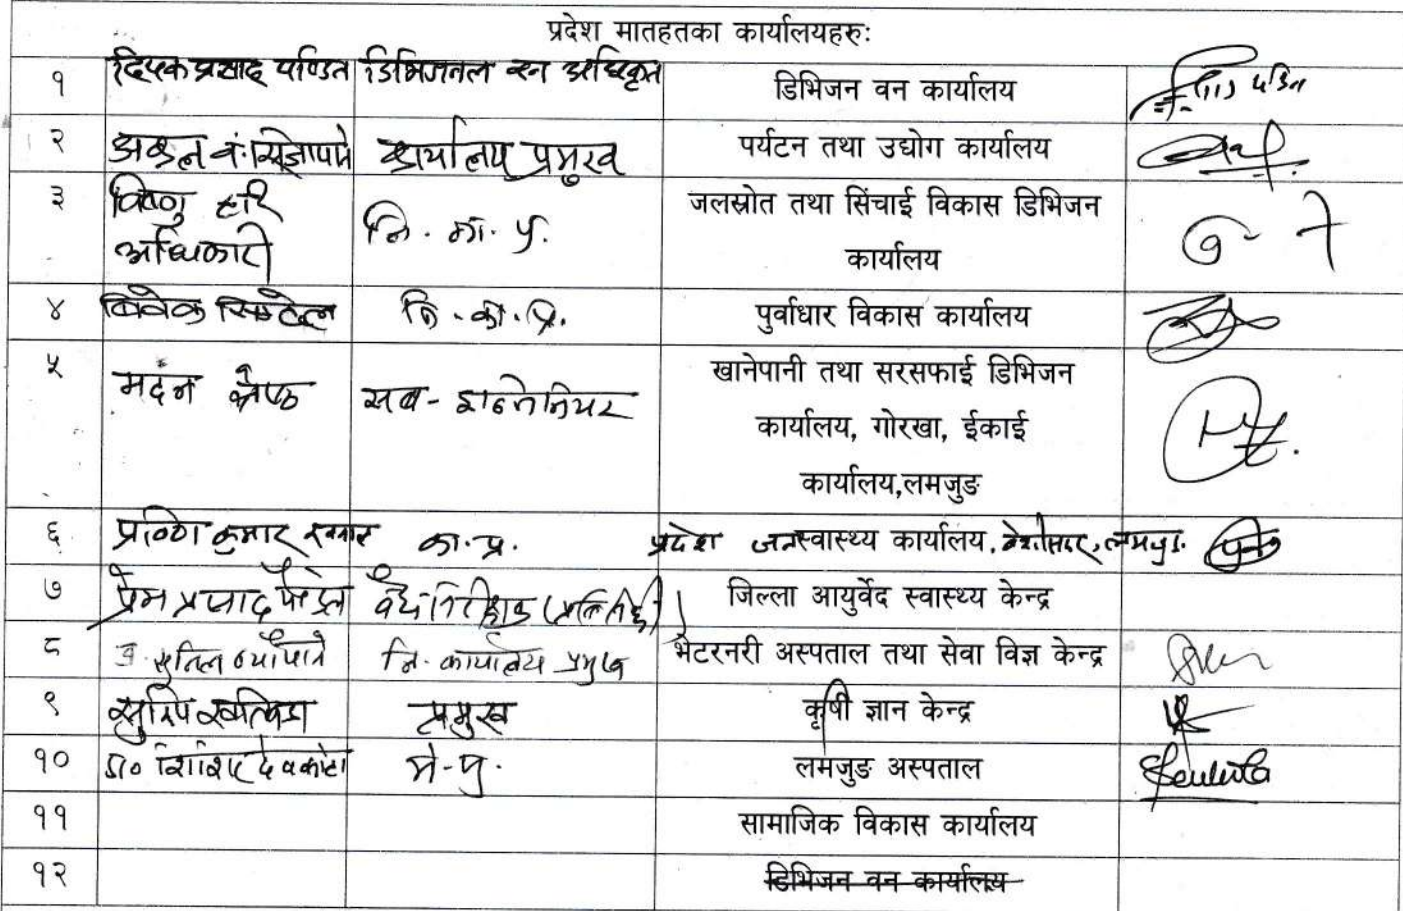 प्रदेश मातहतका कार्यालयहरुः
१ दिपक प्रसाद पण्डित डिभिजनल वन अधिकृत डिभिजन वन कार्यालय
२ कार्यालय प्रमुख पर्यटन तथा उद्योग कार्यालय
३ विष्णु हरि अधिकारी नि. का. प्र. जलस्रोत तथा सिंचाई विकास डिभिजन
कार्यालय
४ विवेक सिग्देल नि. का. प्र. पुर्वाधार विकास कार्यालय
५ मदन श्रेष्ठ सब-इन्जिनियर खानेपानी तथा सरसफाई डिभिजन
कार्यालय, गोरखा, ईकाई
कार्यालय,लमजुङ
६ कुमार का. प्र. प्रदेश जनस्वास्थ्य कार्यालय, लमजुङ
७ प्रेम प्रसाद पौडेल जिल्ला आयुर्वेद स्वास्थ्य केन्द्र
८ नि. कार्यालय प्रमुख भेटरनरी अस्पताल तथा सेवा विज्ञ केन्द्र
९ प्रमुख कृषी ज्ञान केन्द्र
१० डा० शिशिर देवकोटा मे. सु. लमजुङ अस्पताल
११ सामाजिक विकास कार्यालय
१२ डिभिजन वन कार्यालय